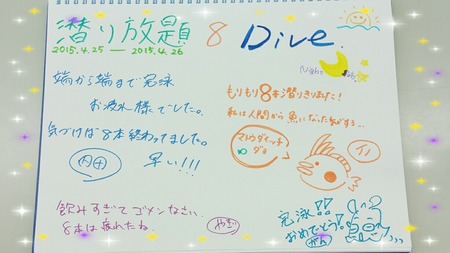 潜り放題 8 Dive.
2015.4.25 — 2015.4.26
Night
端から端まで完泳
お疲れ様でした。
気づけば8本終わってました。
早い!!!
内田
もりもり8本潜りきりました!
私は人間から魚になった気がする…
マトウダイッチ
ダヨ
飲みすぎてゴメンなさい。
8本は疲れたね。
やぎ
完泳!!
おめでとう!